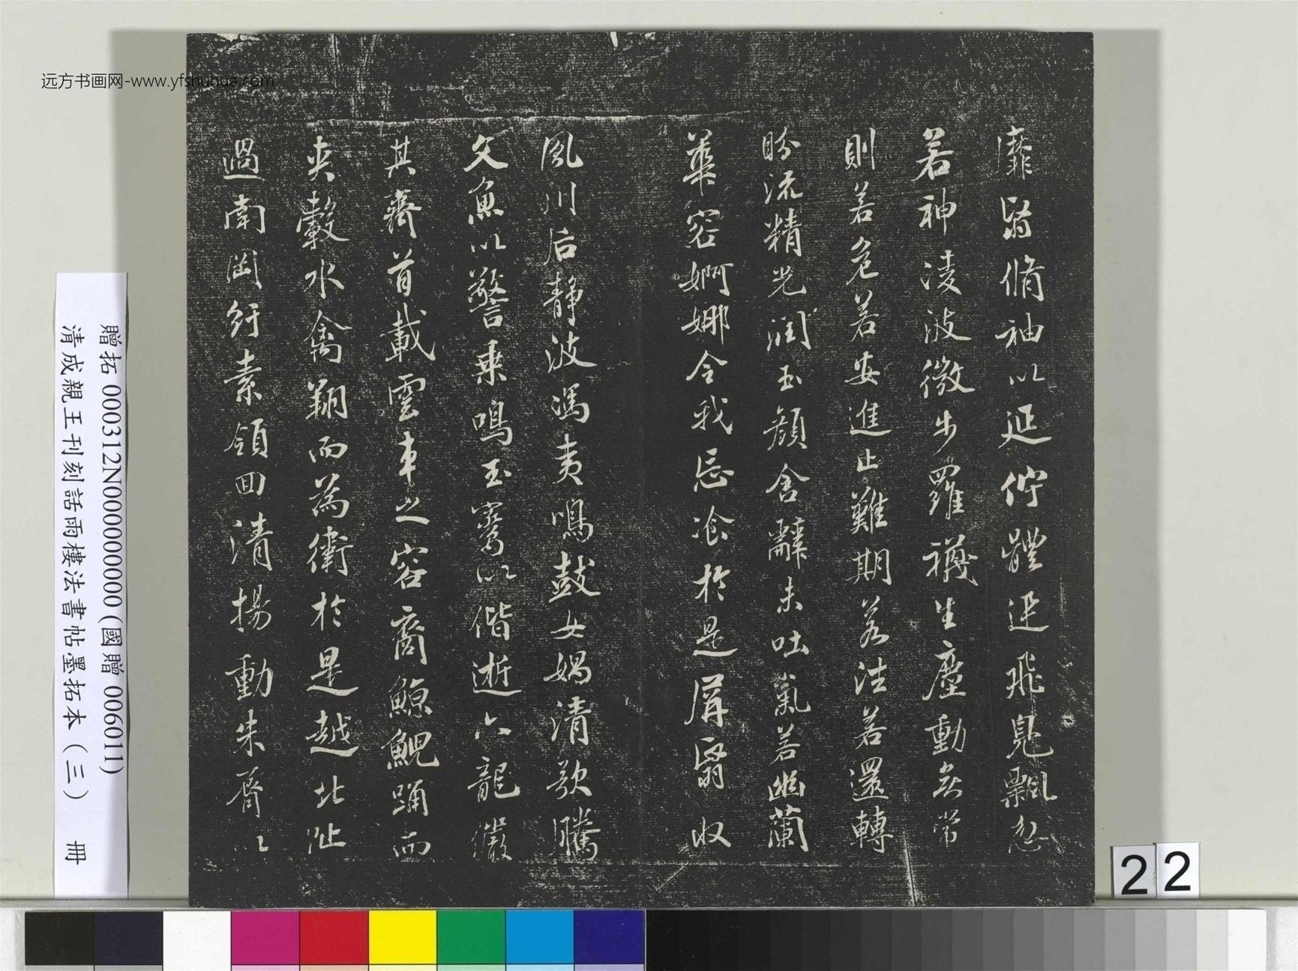 靡翳脩袖以延佇體迅飛鳧飄忽
若神淩波微步羅襪生塵動無常
則若危若安進止難期若往若還轉
盼流精光潤玉顏含辭未吐氣若幽蘭
華容婀娜令我忘飡於是屏翳收
風川后靜波馮夷鳴鼓女媧清歌騰
文魚以警乘鳴玉鸞以偕逝六龍儼
其齊首載雲車之容裔鯨鯢踴而
夾轂水禽翔而為衛於是越北沚
過南岡紆素領回清揚動朱脣以
远方书画网-www.yfshuhua.com
贈拓 000312N000000000(國贈 006011)
清成親王刊刻話雨樓法書帖墨拓本(三) 冊
22